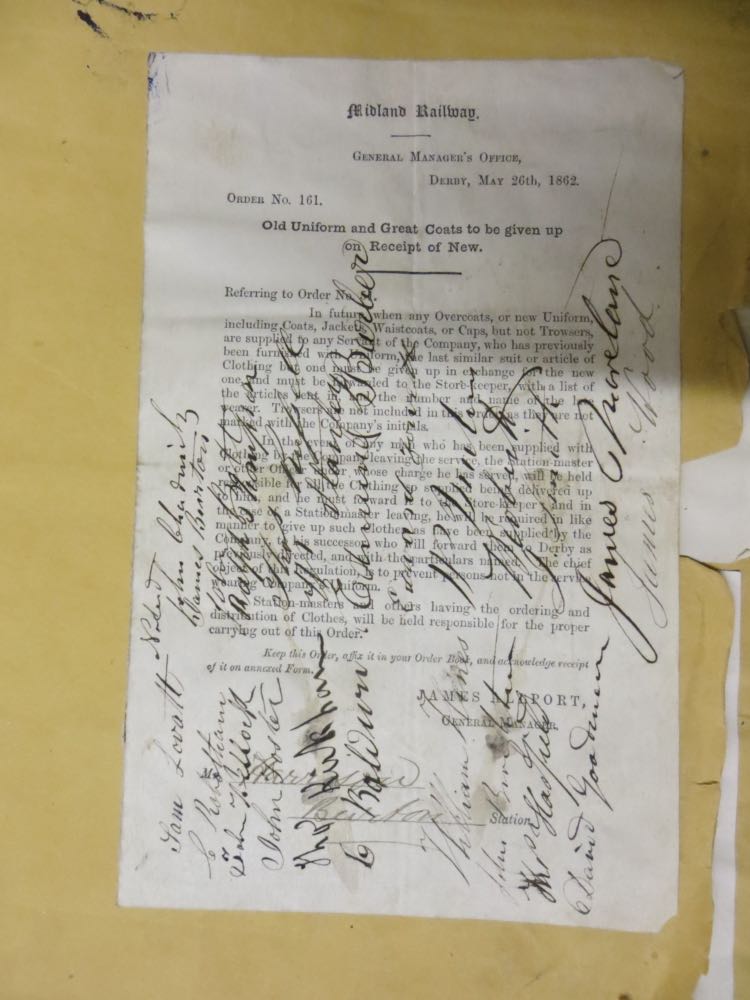 Midland Railway.
GENERAL MANAGER'S OFFICE,
DERBY, MAY 26th, 1862.
ORDER No. 161.
Old Uniform and Great Coats to be given up
on Receipt of New.
Referring to Order No.
In future when any Overcoats, or new Uniform,
including Coats, Jackets, Waistcoats, or Caps, but not Trowsers,
are supplied to any Servant of the Company, who has previously
been furnished with Uniform, the last similar suit or article of
Clothing but one must be given up in exchange for the new
one, and must be forwarded to the Store-keeper, with a list of
the articles sent in, the number and name of the
wearer. Trowsers are not included in this Order, as they are not
marked with the Company's initials.
In the event of any man who has been supplied with
Clothing by the Company leaving the service, the Station-master
or other Officer under whose charge he has served, will be held
responsible for all the Clothing so supplied being delivered up
to him, and he must forward it to the Store-keeper; and in
the case of a Station-master leaving, he will be required in like
manner to give up such Clothes as have been supplied by the
Company, to his successor, who will forward them to Derby as
previously directed, and with the particulars named. The chief
object of this Regulation, is to prevent persons not in the service
wearing Company's Uniform.
Station-masters and others having the ordering and
distribution of Clothes, will be held responsible for the proper
carrying out of this Order.
Keep this Order, affix it in your Order Book, and acknowledge receipt
of it on annexed Form.
JAMES ALLPORT,
GENERAL MANAGER.
Mr. Harrison
Burton Station.
Noted
John Chadwick
James Burton
Sam Lovatt
John
John Foster
Thos Kirkham
Baldwin
Edmund Barber
William
John
David Goodman
James Moreland
James Wood